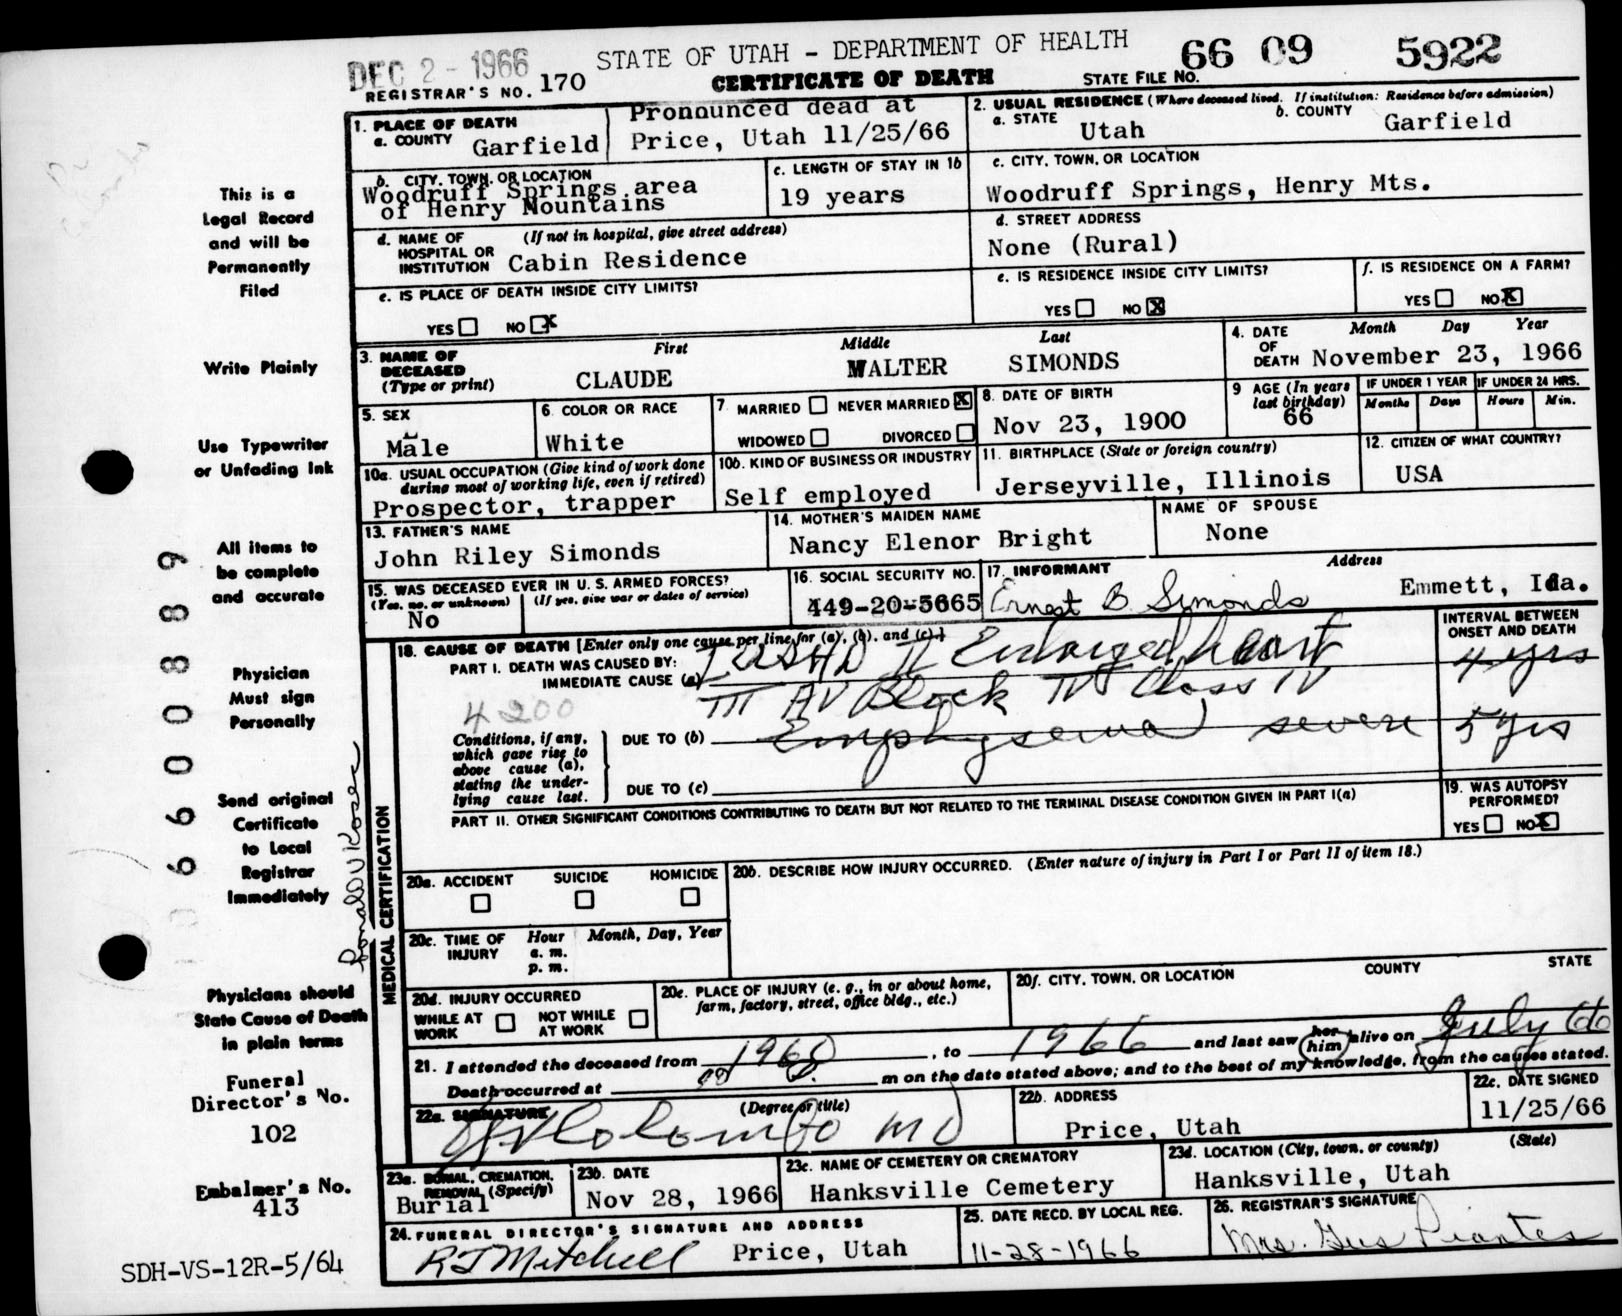 DEC 2 - 1966
STATE OF UTAH - DEPARTMENT OF HEALTH
66 09 5922
REGISTRAR'S NO. 170
CERTIFICATE OF DEATH
STATE FILE NO.
1. PLACE OF DEATH
a. COUNTY Garfield
Pronounced dead at
Price, Utah 11/25/66
2. USUAL RESIDENCE (Where deceased lived. If institution: Residence before admission)
a. STATE Utah
b. COUNTY Garfield
b. CITY, TOWN, OR LOCATION
Woodruff Springs area
of Henry Mountains
c. LENGTH OF STAY IN 1b
19 years
c. CITY, TOWN, OR LOCATION
Woodruff Springs, Henry Mts.
d. NAME OF HOSPITAL OR INSTITUTION (If not in hospital, give street address)
Cabin Residence
d. STREET ADDRESS
None (Rural)
e. IS PLACE OF DEATH INSIDE CITY LIMITS?
YES NO X
e. IS RESIDENCE INSIDE CITY LIMITS?
YES NO X
f. IS RESIDENCE ON A FARM?
YES NO X
3. NAME OF DECEASED (Type or print)
First Middle Last
CLAUDE WALTER SIMONDS
4. DATE OF DEATH
Month Day Year
November 23, 1966
5. SEX
Male
6. COLOR OR RACE
White
7. MARRIED NEVER MARRIED X
WIDOWED DIVORCED
8. DATE OF BIRTH
Nov 23, 1900
9 AGE (In years last birthday)
66
IF UNDER 1 YEAR
Months Days
IF UNDER 24 HRS.
Hours Min.
10a. USUAL OCCUPATION (Give kind of work done during most of working life, even if retired)
Prospector, trapper
10b. KIND OF BUSINESS OR INDUSTRY
Self employed
11. BIRTHPLACE (State or foreign country)
Jerseyville, Illinois
12. CITIZEN OF WHAT COUNTRY?
USA
13. FATHER'S NAME
John Riley Simonds
14. MOTHER'S MAIDEN NAME
Nancy Elenor Bright
NAME OF SPOUSE
None
15. WAS DECEASED EVER IN U. S. ARMED FORCES?
(Yes, no, or unknown) (If yes, give war or dates of service)
No
16. SOCIAL SECURITY NO.
449-20-5665
17. INFORMANT Address
Ernest B. Simonds Emmett, Ida.
18. CAUSE OF DEATH [Enter only one cause per line for (a), (b), and (c).]
INTERVAL BETWEEN ONSET AND DEATH
PART I. DEATH WAS CAUSED BY:
IMMEDIATE CAUSE (a) II Enlarged heart 4 yrs
III AV Block IV Class IV
4200
Conditions, if any, which gave rise to above cause (a), stating the underlying cause last.
DUE TO (b) Emphysema severe 5 yrs
DUE TO (c)
PART II. OTHER SIGNIFICANT CONDITIONS CONTRIBUTING TO DEATH BUT NOT RELATED TO THE TERMINAL DISEASE CONDITION GIVEN IN PART I(a)
19. WAS AUTOPSY PERFORMED?
YES NO X
MEDICAL CERTIFICATION
20a. ACCIDENT SUICIDE HOMICIDE
20b. DESCRIBE HOW INJURY OCCURRED. (Enter nature of injury in Part I or Part II of item 18.)
20c. TIME OF INJURY
Hour Month, Day, Year
a. m.
p. m.
20d. INJURY OCCURRED
WHILE AT WORK NOT WHILE AT WORK
20e. PLACE OF INJURY (e. g., in or about home, farm, factory, street, office bldg., etc.)
20f. CITY, TOWN, OR LOCATION COUNTY STATE
21. I attended the deceased from 1960, to 1966 and last saw her him alive on July 66
Death occurred at m on the date stated above; and to the best of my knowledge, from the causes stated.
22a. SIGNATURE (Degree or title)
Colombo MD
22b. ADDRESS
Price, Utah
22c. DATE SIGNED
11/25/66
23a. BURIAL, CREMATION, REMOVAL (Specify)
Burial
23b. DATE
Nov 28, 1966
23c. NAME OF CEMETERY OR CREMATORY
Hanksville Cemetery
23d. LOCATION (City, town, or county) (State)
Hanksville, Utah
24. FUNERAL DIRECTOR'S SIGNATURE AND ADDRESS
R J Mitchell Price, Utah
25. DATE RECD. BY LOCAL REG.
11-28-1966
26. REGISTRAR'S SIGNATURE
Mrs. Gus
This is a
Legal Record
and will be
Permanently
Filed
Write Plainly
Use Typewriter
or Unfading Ink
All items to
be complete
and accurate
Physician
Must sign
Personally
Send original
Certificate
to Local
Registrar
Immediately
Physicians should
State Cause of Death
in plain terms
Funeral
Director's No.
102
Embalmer's No.
413
SDH-VS-12R-5/64
6600889